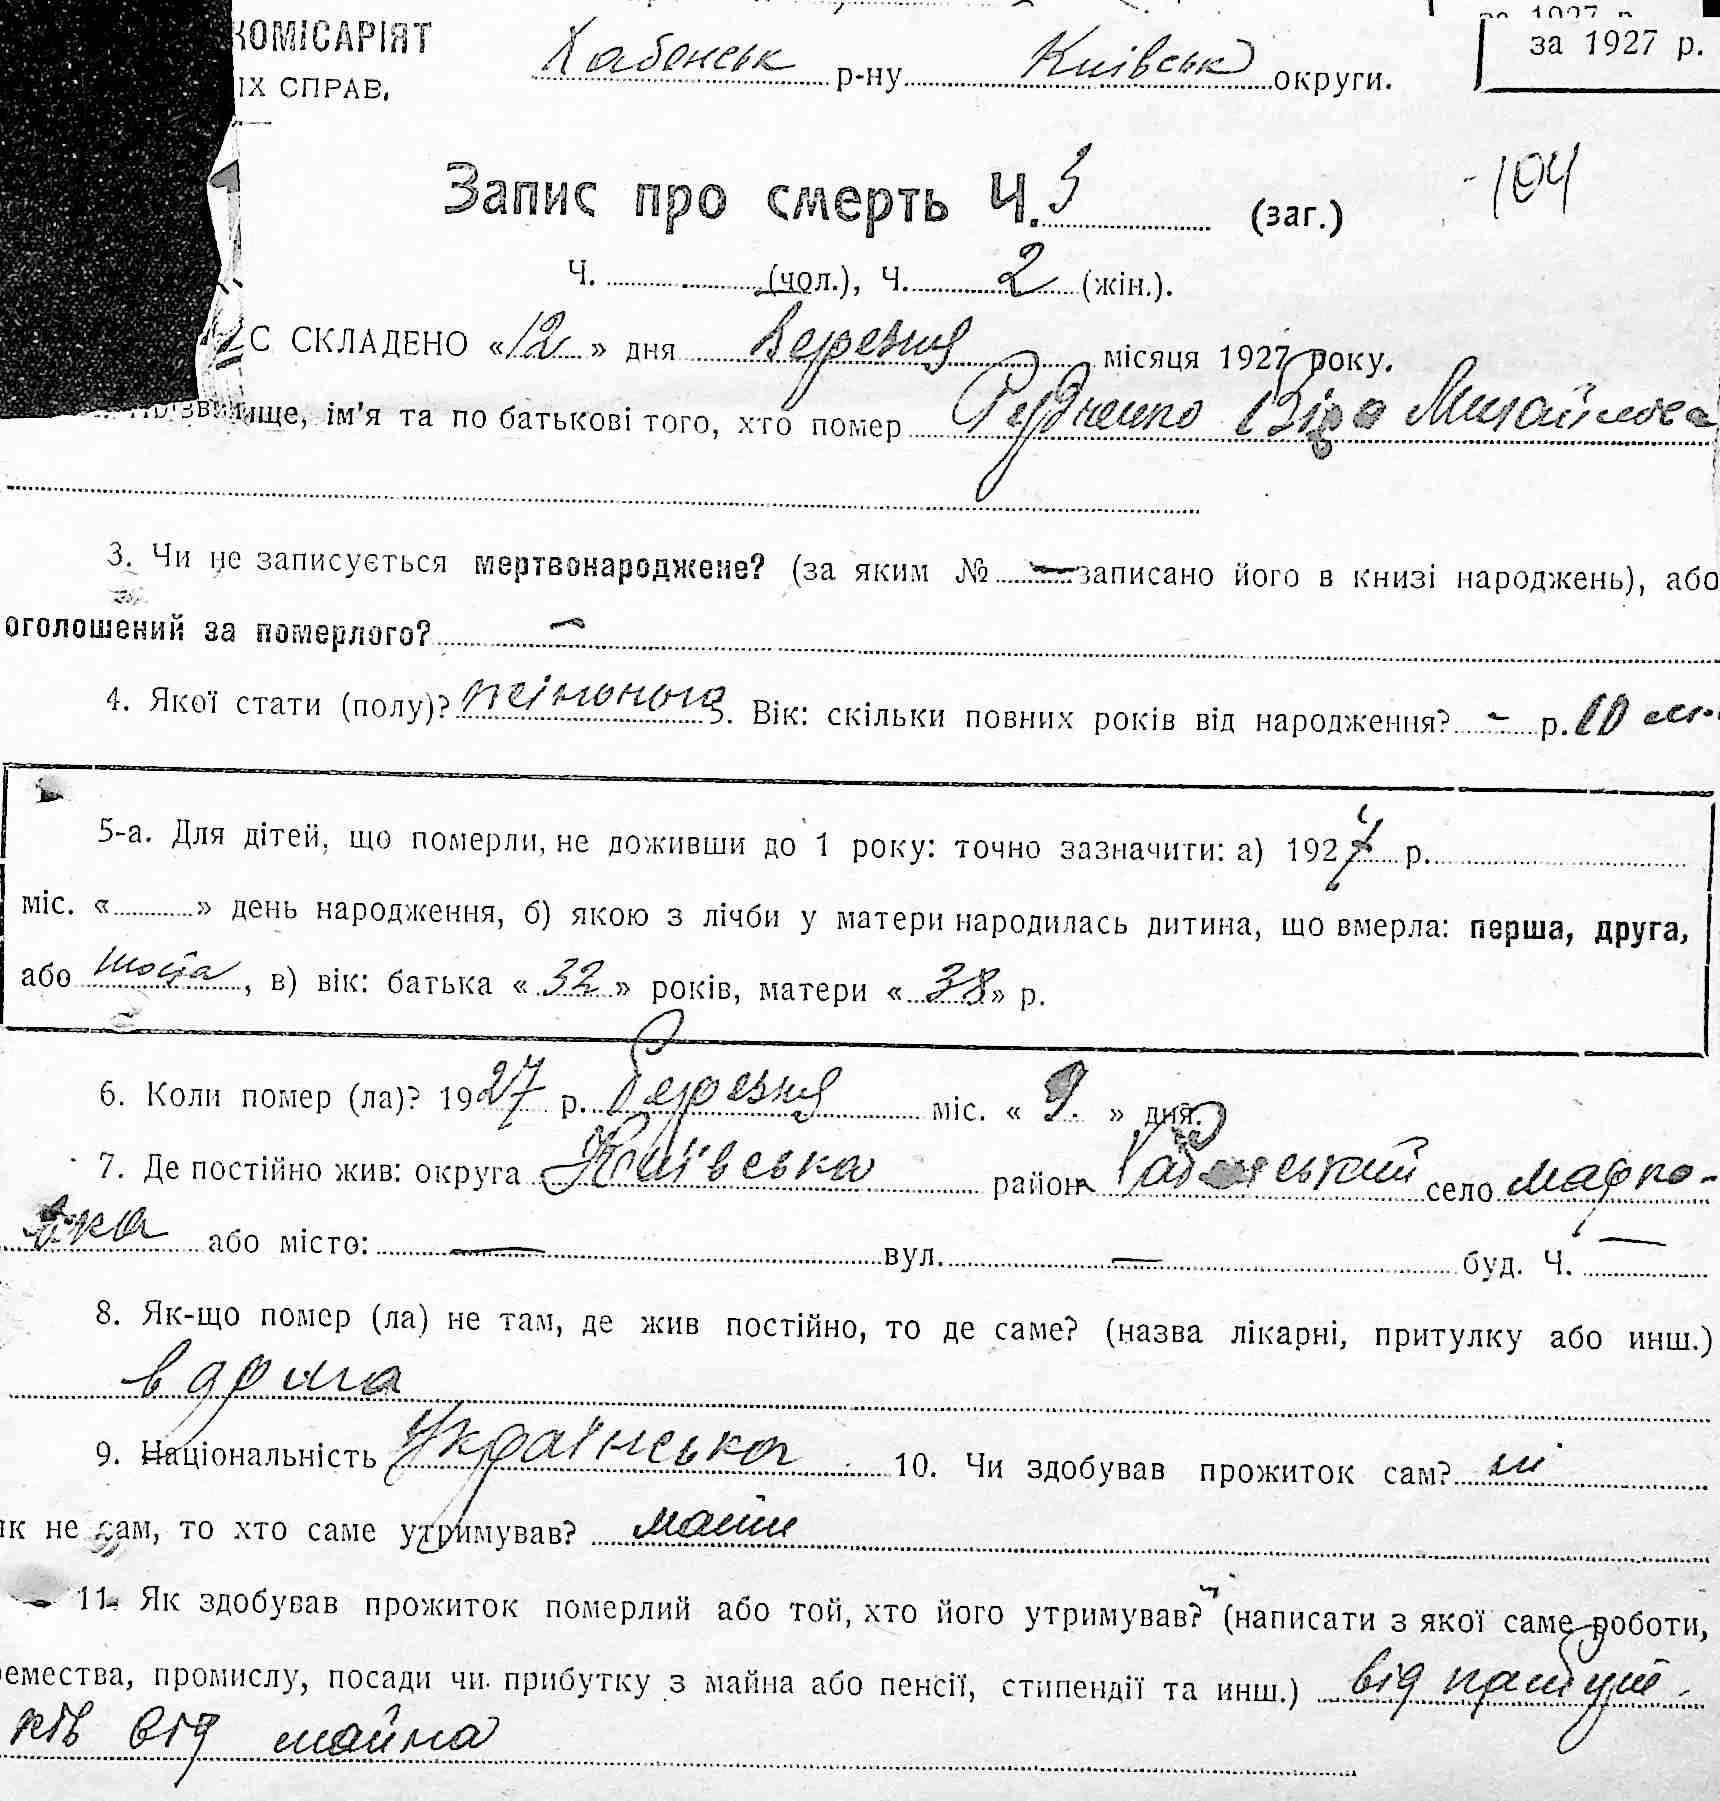 КОМІСАРІЯТ
ІХ СПРАВ.
Хабенськ р-ну Київськ округи.
за 1927 р.
Запис про смерть Ч. 3 (заг.)
104
Ч. (чол.), Ч. 2 (жін.).
С СКЛАДЕНО «12» дня Березня місяця 1927 року.
Прізвище, ім'я та по батькові того, хто помер Рудненко Віра Михайлова
3. Чи не записується мертвонароджене? (за яким № — записано його в книзі народжень), або
оголошений за померлого? —
4. Якої стати (полу)? жіноча 5. Вік: скільки повних років від народження? - р. 10 м.
5-а. Для дітей, що померли, не доживши до 1 року: точно зазначити: а) 192 р.
міс. « » день народження, б) якою з лічби у матери народилась дитина, що вмерла: перша, друга,
або шоста, в) вік: батька «32» років, матери «38» р.
6. Коли помер (ла)? 1927 р. Березня міс. «9.» дня.
7. Де постійно жив: округа Київська район Хабенський село Марко-
вка або місто: — вул. — буд. Ч. —
8. Як-що помер (ла) не там, де жив постійно, то де саме? (назва лікарні, притулку або инш.)
в дома
9. Національність Українська 10. Чи здобував прожиток сам? ні
як не сам, то хто саме утримував? мати
11. Як здобував прожиток померлий або той, хто його утримував? (написати з якої саме роботи,
ремества, промислу, посади чи прибутку з майна або пенсії, стипендії та инш.) від прибут-
ків від майна